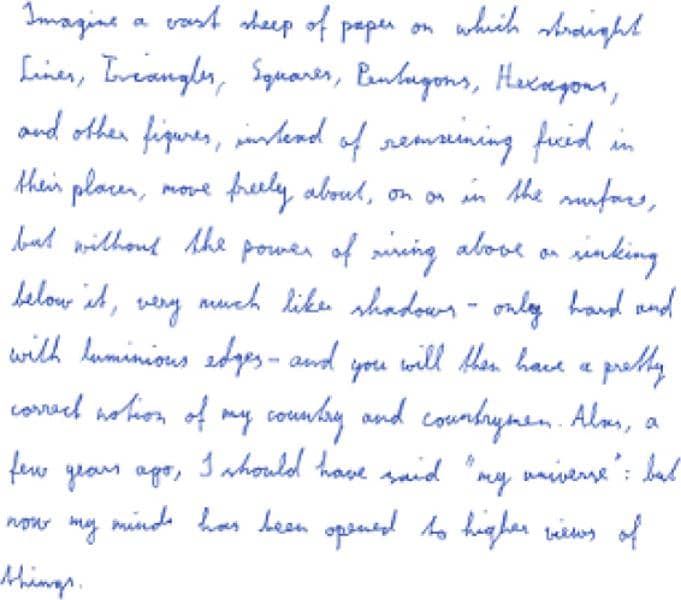 Imagine a vast sheep of paper on which straight
Lines, Triangles, Squares, Pentagons, Hexagons,
and other figures, instead of remaining fixed in
their places, move freely about, on or in the surface,
but without the power of rising above or sinking
below it, very much like shadows - only hard and
with luminious edges - and you will then have a pretty
correct notion of my country and countrymen. Alas, a
few years ago, I should have said "my universe": but
now my mind has been opened to higher views of
things.